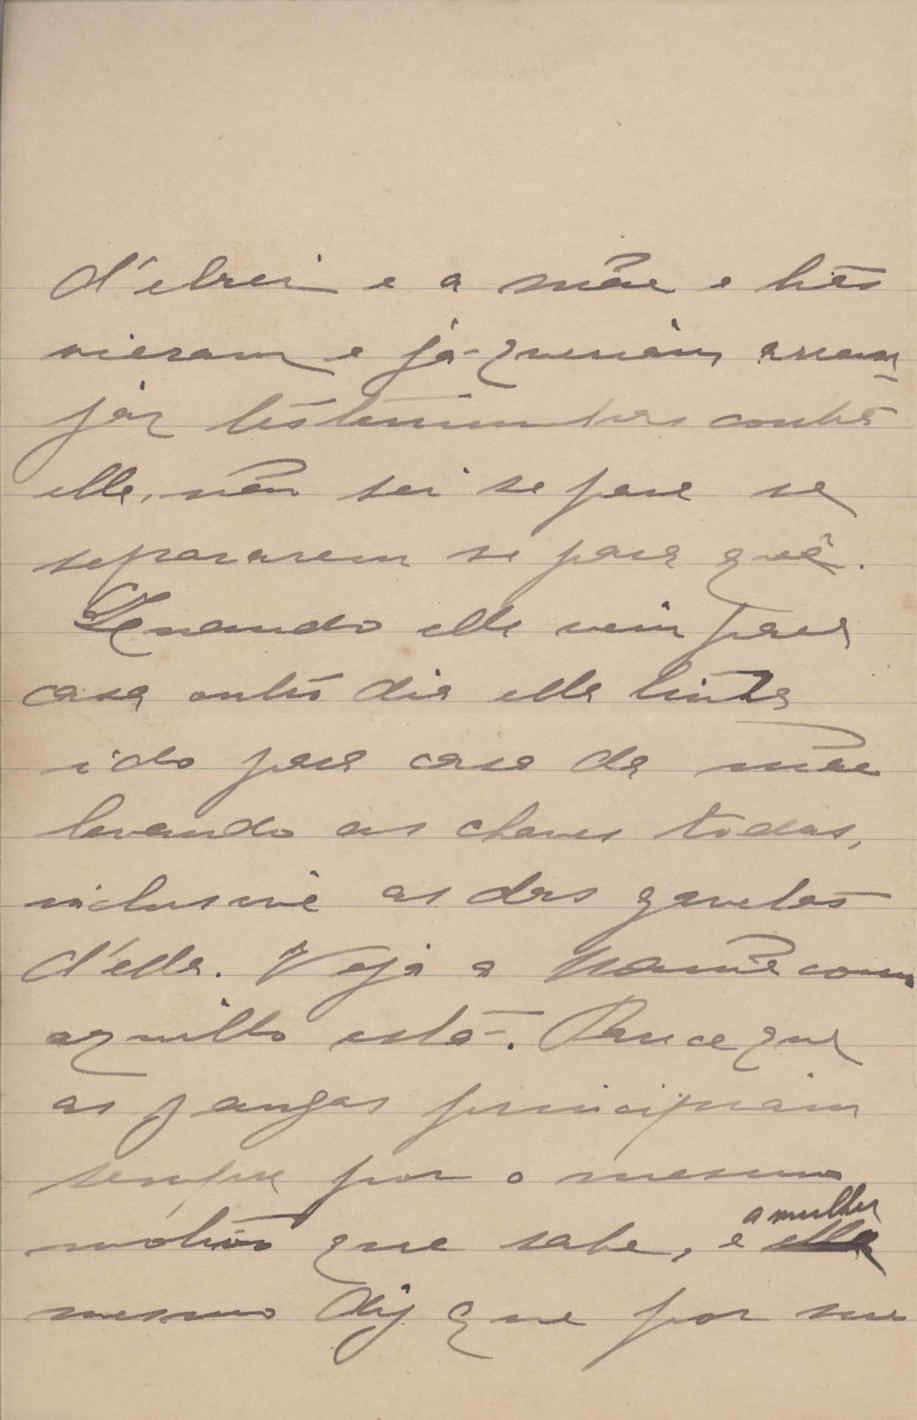 d'elrei e a mãe e tres
vieram e já queriam arran
jár testemunhas contra
elle, não sei se para se
separarem se para quê.
Quando elle veiu para
casa outro dia ella tinha
ido para casa da mãe
levando as chaves todas,
inclusivè as das gavetas
d'elle. Veja a Mamã como
aquillo está. Parece que
as zangas principiam
sempre por o mesmo
motivo que sabe, e a mulher
mesmo diz que por